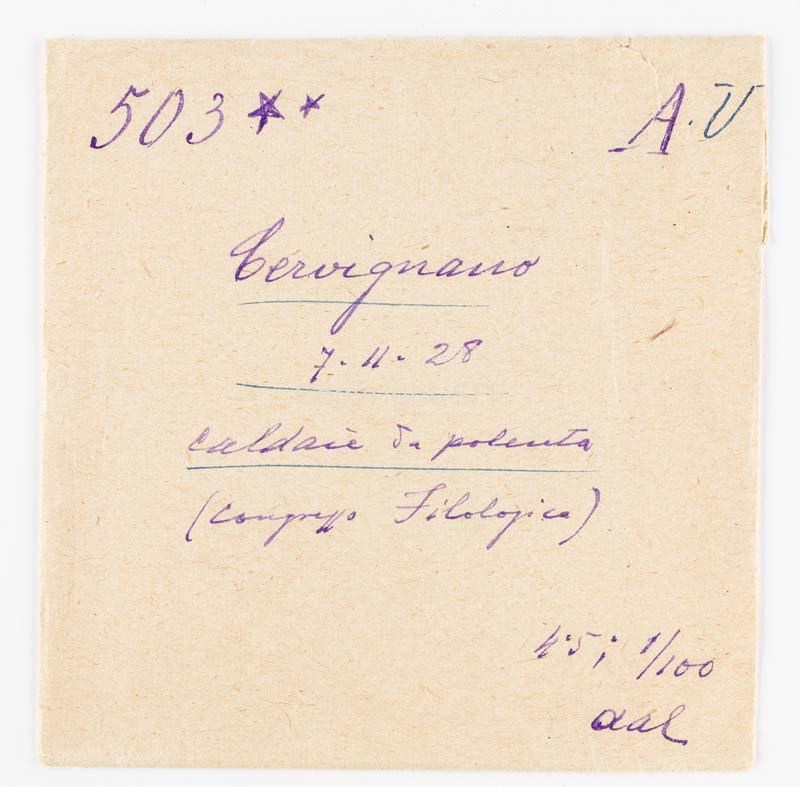 503 ** A. V
Cervignano
7-11-28
caldaie da polenta
(Congresso Filologica)
4.5; 1/100
dal